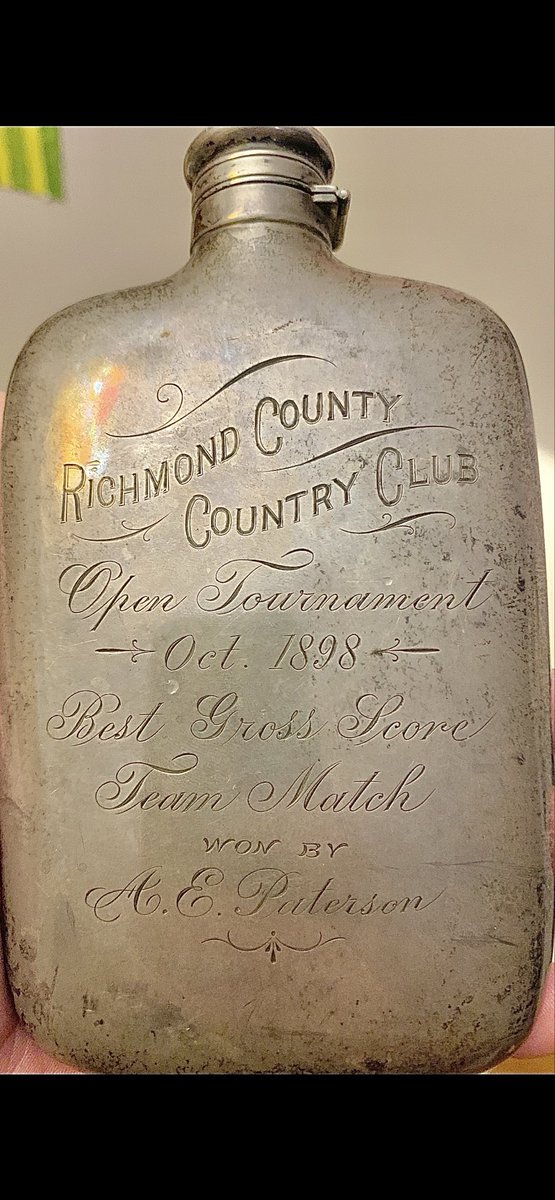 RICHMOND COUNTY
COUNTRY CLUB
Open Tournament
Oct. 1898
Best Gross Score
Team Match
WON BY
A. E. Paterson